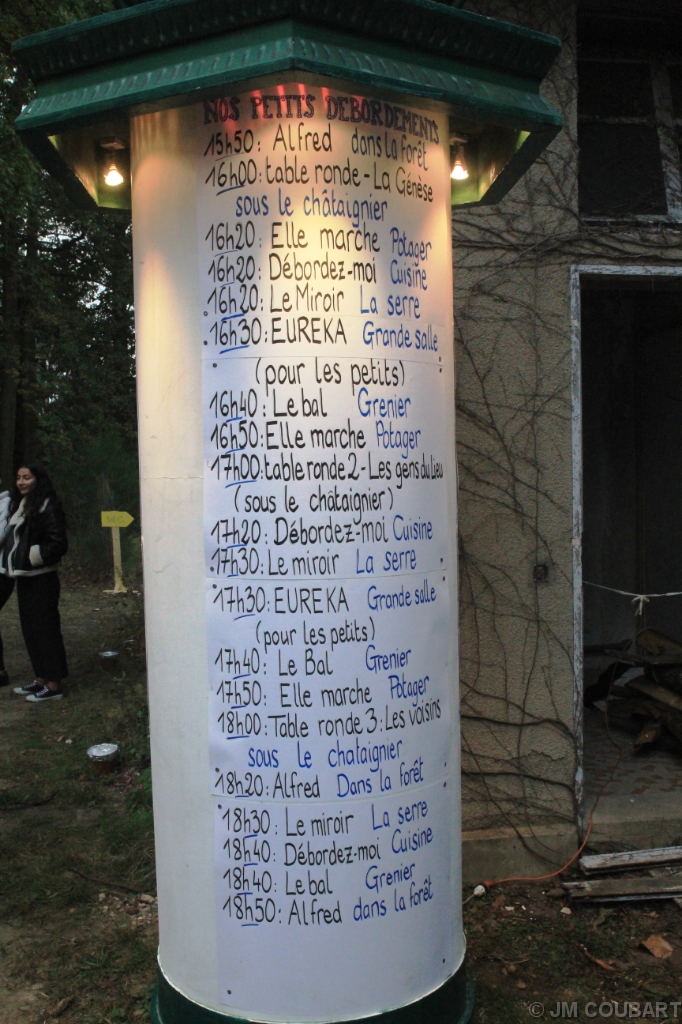 NOS PETITS DEBORDEMENTS
15h50: Alfred dans la forêt
16h00: table ronde - La Génèse
sous le châtaignier
16h20: Elle marche Potager
16h20: Débordez-moi Cuisine
16h20: Le Miroir La serre
16h30: EUREKA Grande salle
(pour les petits)
16h40: Le bal Grenier
16h50: Elle marche Potager
17h00: table ronde 2 - Les gens du lieu
(sous le châtaignier)
17h20: Débordez-moi Cuisine
17h30: Le miroir La serre
17h30: EUREKA Grande salle
(pour les petits)
17h40: Le Bal Grenier
17h50: Elle marche Potager
18h00: Table ronde 3: Les voisins
sous le chataignier
18h20: Alfred Dans la forêt
18h30: Le miroir La serre
18h40: Débordez-moi Cuisine
18h40: Le bal Grenier
18h50: Alfred dans la forêt
© JM COUBART